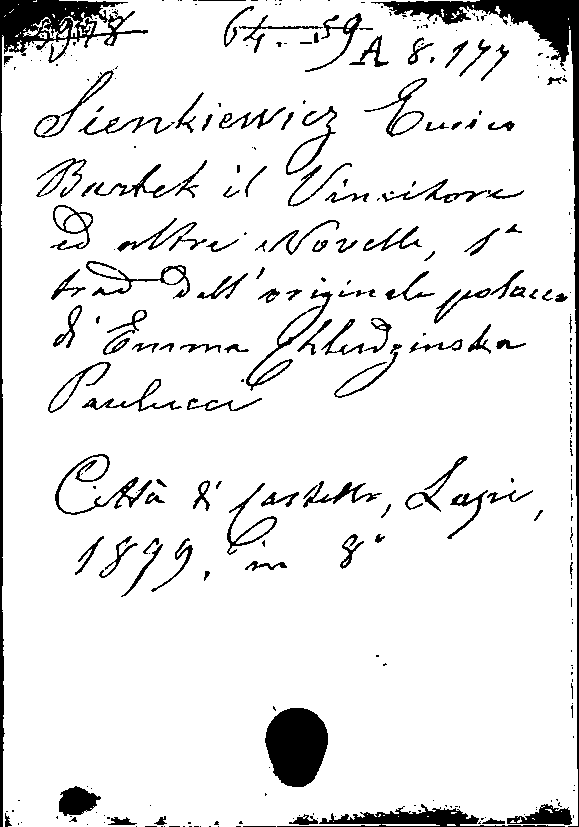 64.-59 A 8.177
Sienkiewicz Enrico
Bartek il Vincitore
ed altre Novelle, 1ª
trad dall'originale polacco
di Emma Chledzinska
Paulucci
Città di Castello, Lapi,
1899, in 8°